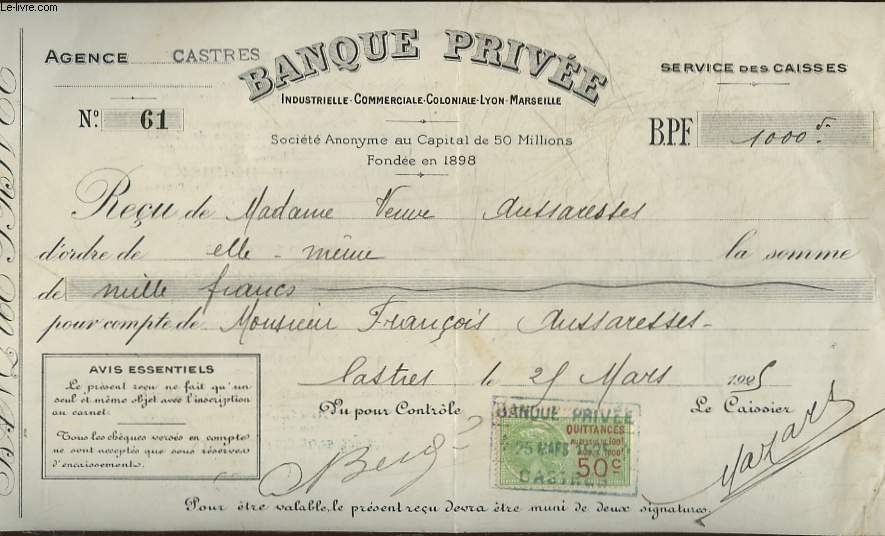 Le-livre.com
AGENCE CASTRES
BANQUE PRIVÉE
INDUSTRIELLE-COMMERCIALE-COLONIALE-LYON-MARSEILLE
SERVICE DES CAISSES
N° 61
Société Anonyme au Capital de 50 Millions
Fondée en 1898
B.P.F. 1000
Reçu de Madame Veuve Aussaresses
d'ordre de elle-même la somme
de mille francs
pour compte de Monsieur François Aussaresses
AVIS ESSENTIELS
Le présent reçu ne fait qu'un
seul et même objet avec l'inscription
au carnet.
Tous les chèques versés en comptes
ne sont acceptés que sous réserves
d'encaissement.
Castres le 25 Mars 1925
Vu pour Contrôle
Le Caissier
BANQUE PRIVÉE
QUITTANCES
25 MARS
50c
CASTRES
Pour être valable, le présent reçu devra être muni de deux signatures.